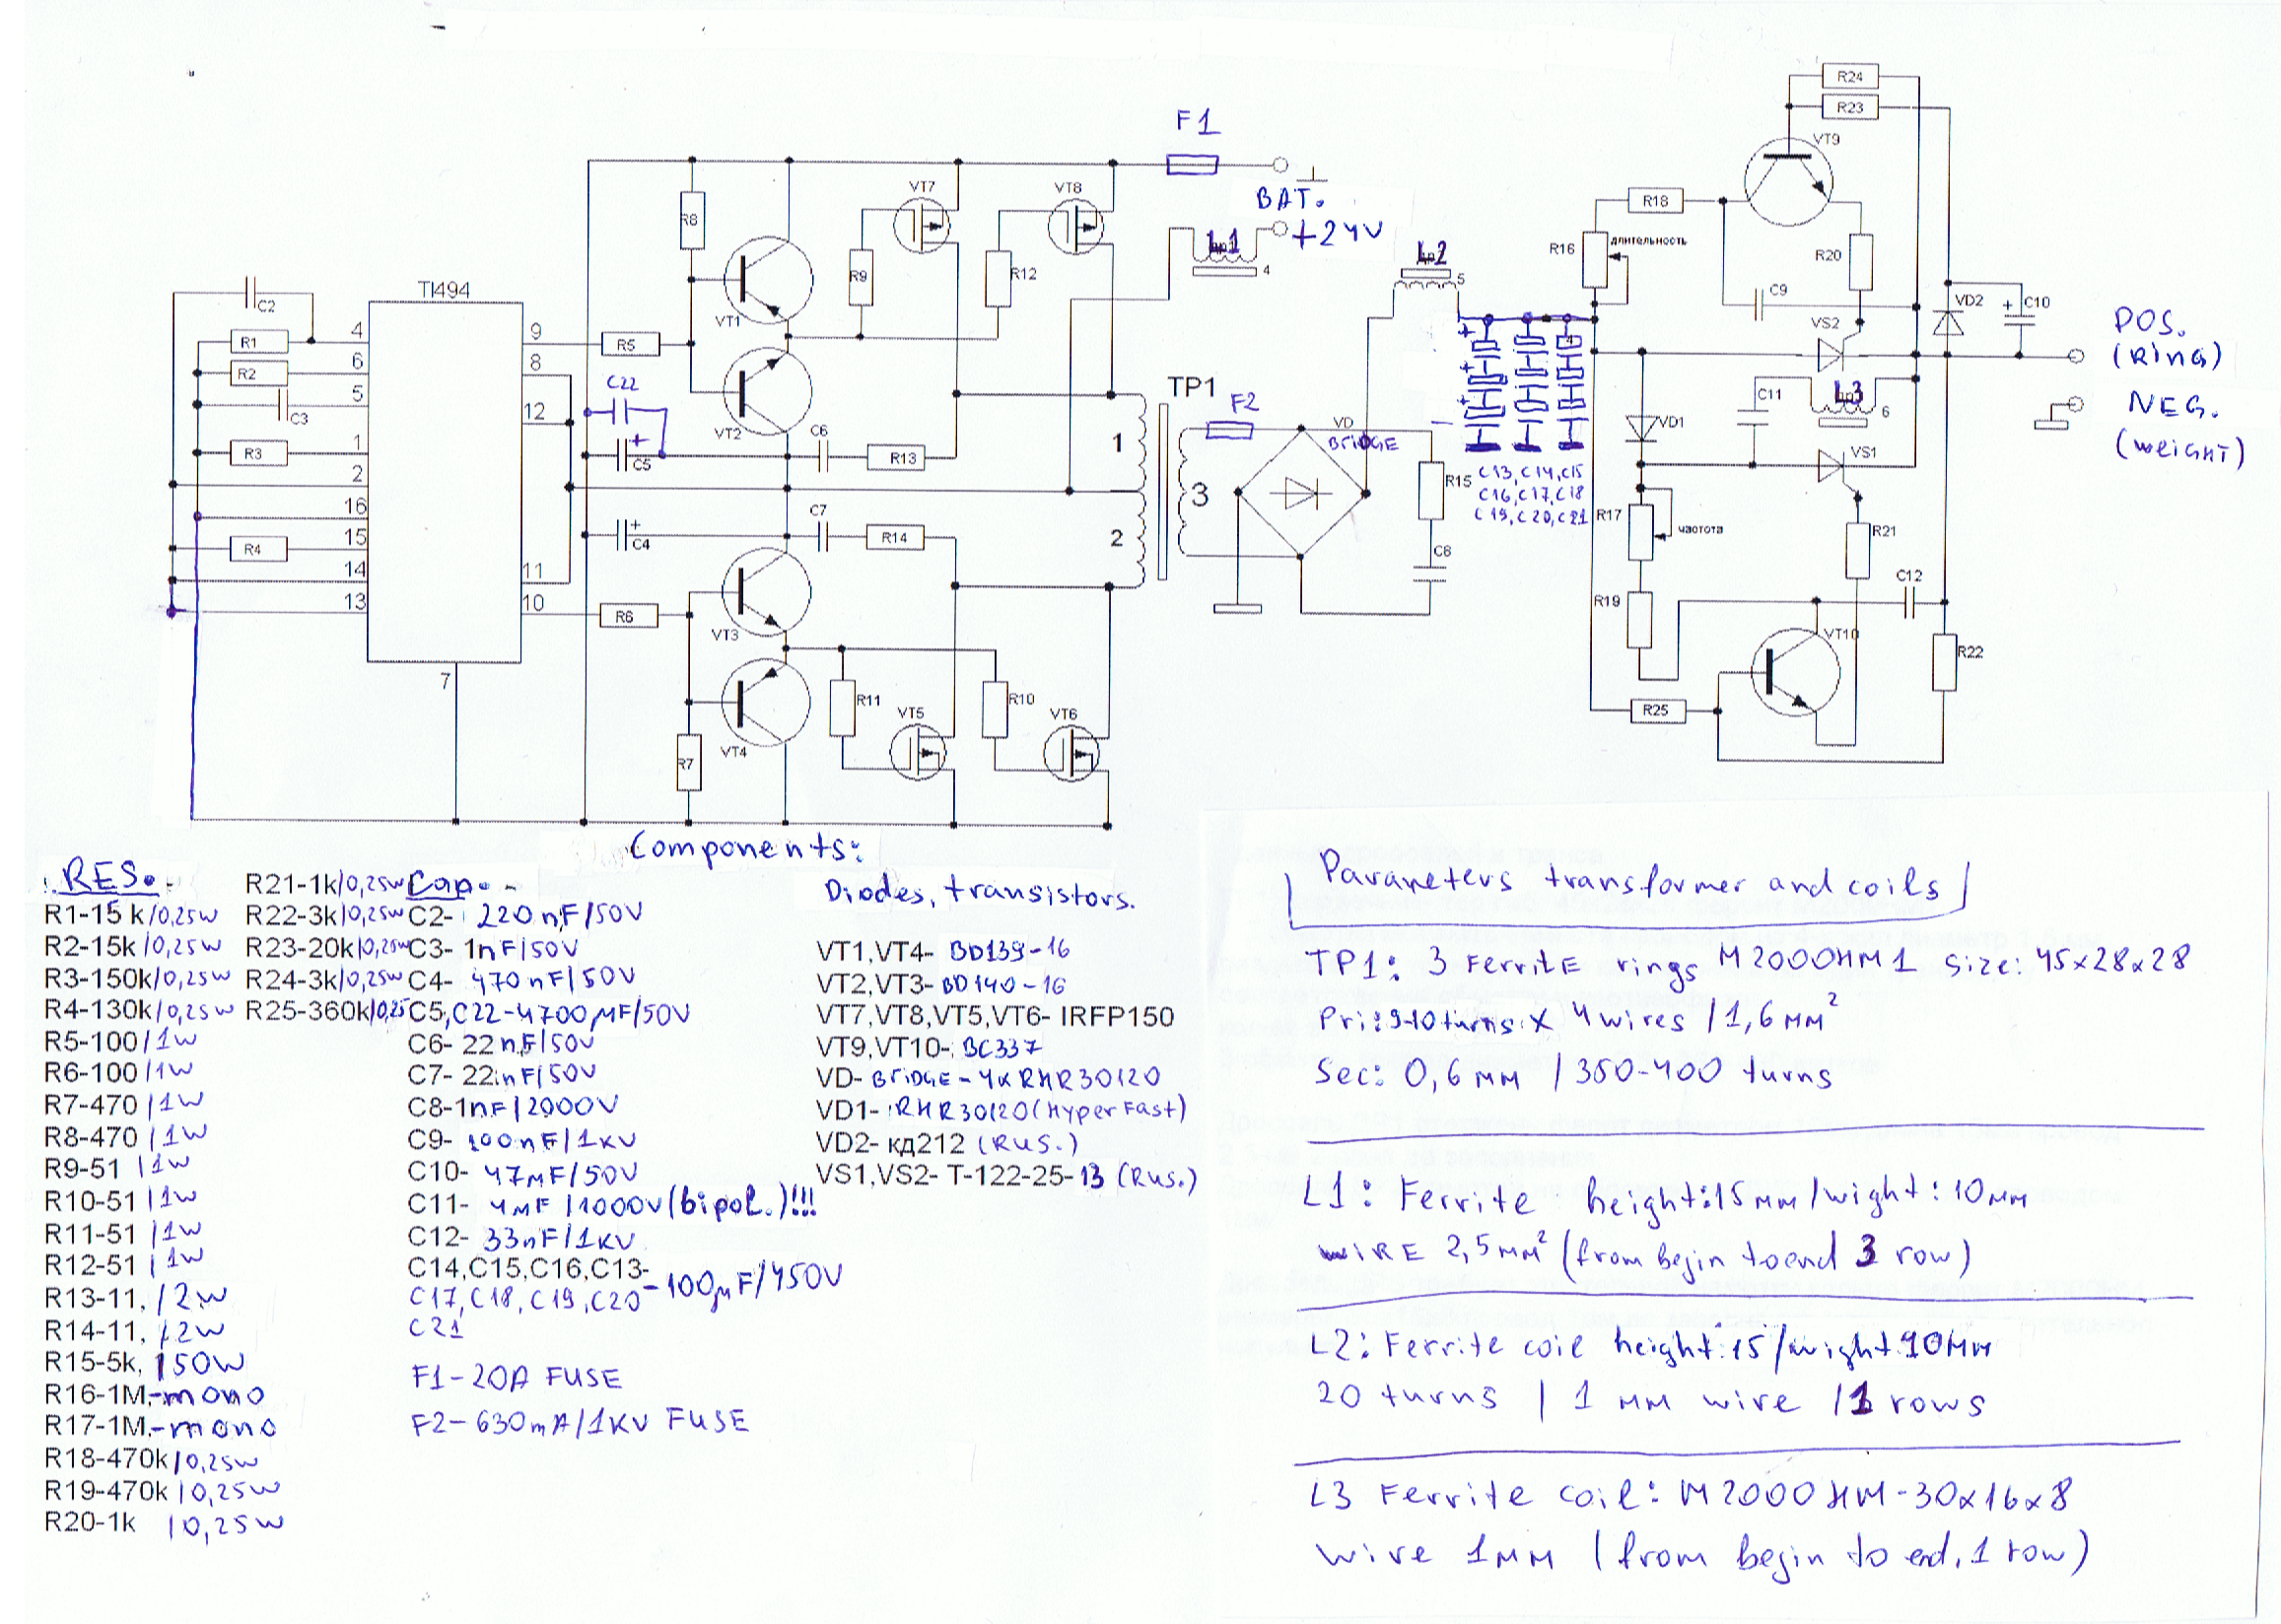 F1
BAT.
+24V
L1
4
L2
5
VT7
VT8
R8
R9
R12
VT1
VT2
TI494
C2
R1
R2
C3
R3
R4
4
6
5
1
2
16
15
14
13
7
9
8
12
11
10
R5
C22
+
C5
C6
R13
+
C4
C7
R14
R6
VT3
VT4
R7
R11
VT5
R10
VT6
TP1
1
2
3
F2
VD
BRIDGE
R15
C8
+
+
+
4
C13, C14, C15
C16, C17, C18
C19, C20, C21
R24
R23
VT9
R18
R16
длительность
R20
C9
VS2
VD2
+
C10
POS.
(Ring)
NEG.
(weight)
C11
L3
6
VD1
VS1
R17
частота
R21
R19
C12
VT10
R22
R25
Components:
RES.
R1-15 k/0,25w
R2-15k/0,25w
R3-150k/0,25w
R4-130k/0,25w
R5-100/1w
R6-100/1w
R7-470/1w
R8-470/1w
R9-51/1w
R10-51/1w
R11-51/1w
R12-51/1w
R13-11,/2w
R14-11,/2w
R15-5k, 150W
R16-1M,-mono
R17-1M,-mono
R18-470k/0,25w
R19-470k/0,25w
R20-1k /0,25w
R21-1k/0,25w
R22-3k/0,25w
R23-20k/0,25w
R24-3k/0,25w
R25-360k/0,25
Cap.-
C2- 220nF/50V
C3- 1nF/50V
C4- 470nF/50V
C5,C22-4700MF/50V
C6- 22nF/50V
C7- 22nF/50V
C8-1nF/2000V
C9- 100nF/1KV
C10- 47MF/50V
C11- 4MF/1000V(bipol.)!!!
C12- 33nF/1KV
C14,C15,C16,C13-
C17, C18, C19, C20 -100µF/450V
C21
F1-20A FUSE
F2-630mA/1KV FUSE
Diodes, transistors.
VT1,VT4- BD139-16
VT2,VT3- BD140-16
VT7,VT8,VT5,VT6- IRFP150
VT9,VT10- BC337
VD- BRIDGE-4x RHR30120
VD1- RHR30120(HyperFast)
VD2- кд212 (RUS.)
VS1,VS2- T-122-25-13 (RUS.)
Parameters transformer and coils
TP1: 3 FerritE rings M2000HM1 size: 45x28x28
Pri:9-10turns x 4wires/1,6mm²
Sec: 0,6mm/350-400 turns
L1: Ferrite height:15mm/wight:10mm
WIRE 2,5mm² (from begin to end 3 row)
L2: Ferrite coil height:15/wight 10mm
20 turns / 1 mm wire /1 rows
L3 Ferrite coil: M2000HM-30x16x8
wire 1mm (from begin to end, 1 row)